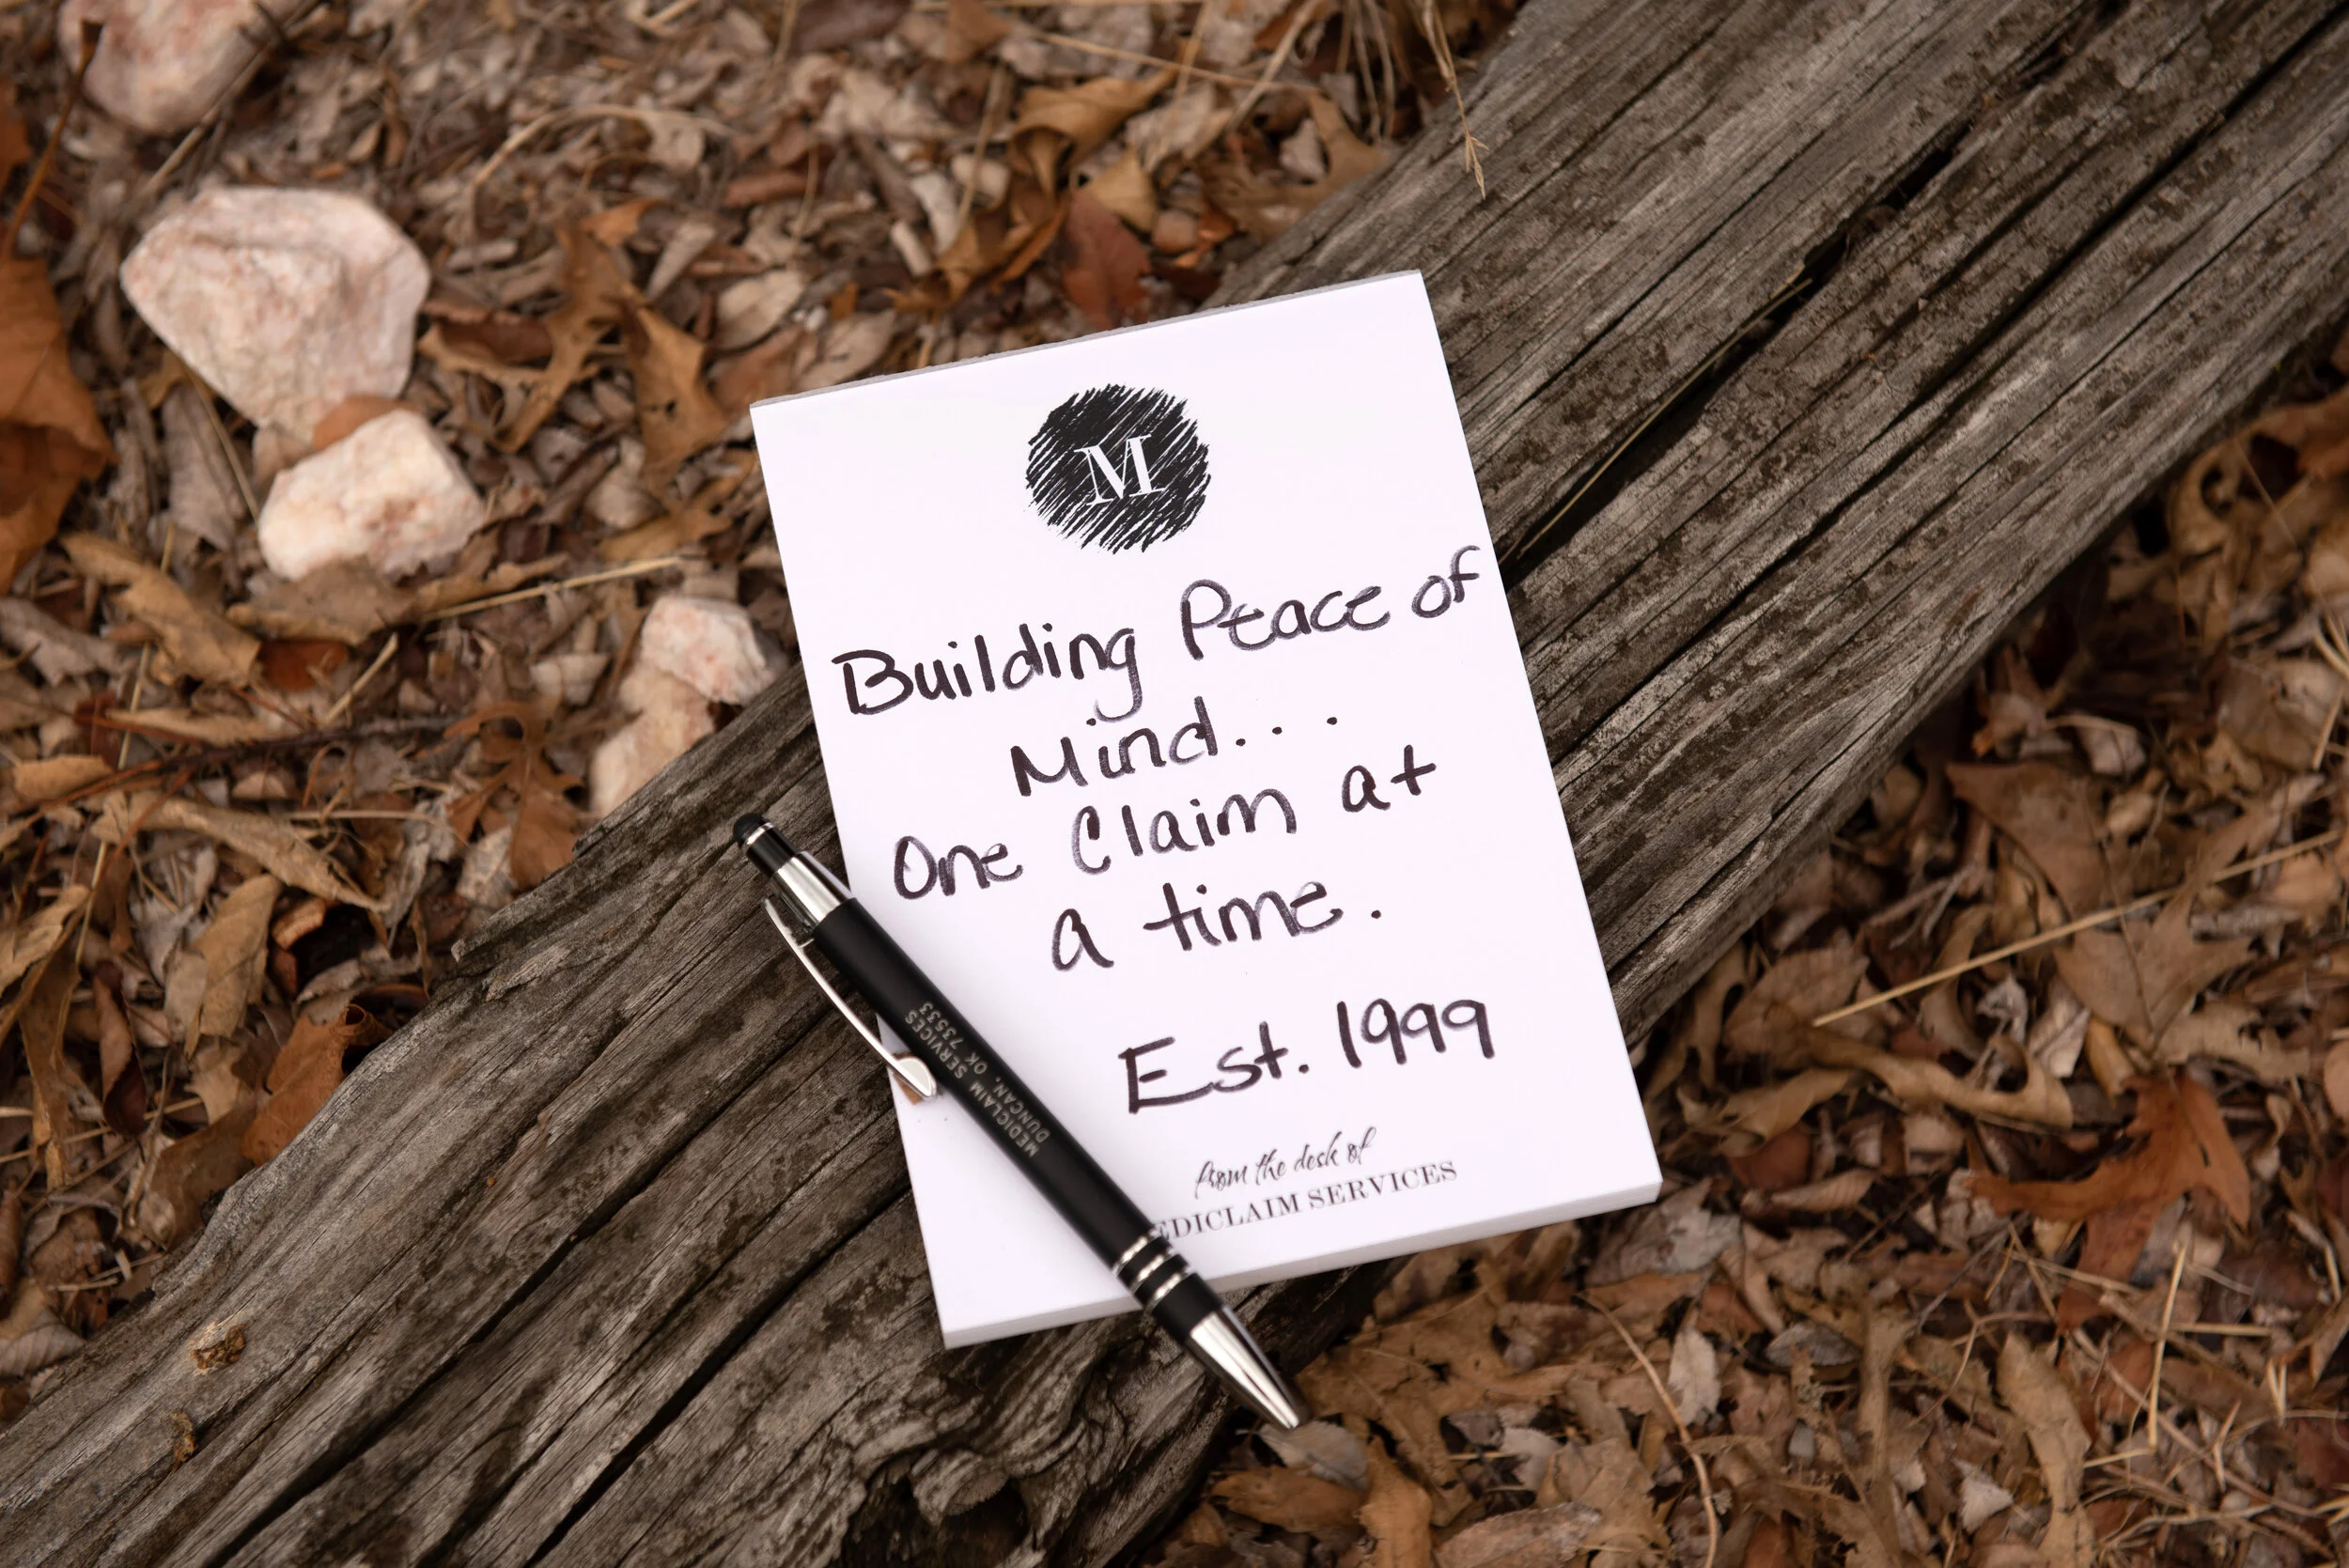 M
Building Peace of
Mind...
One Claim at
a time.
Est. 1999
from the desk of
EDICLAIM SERVICES
MEDICLAIM SERVICES
DUNCAN, OK 73533